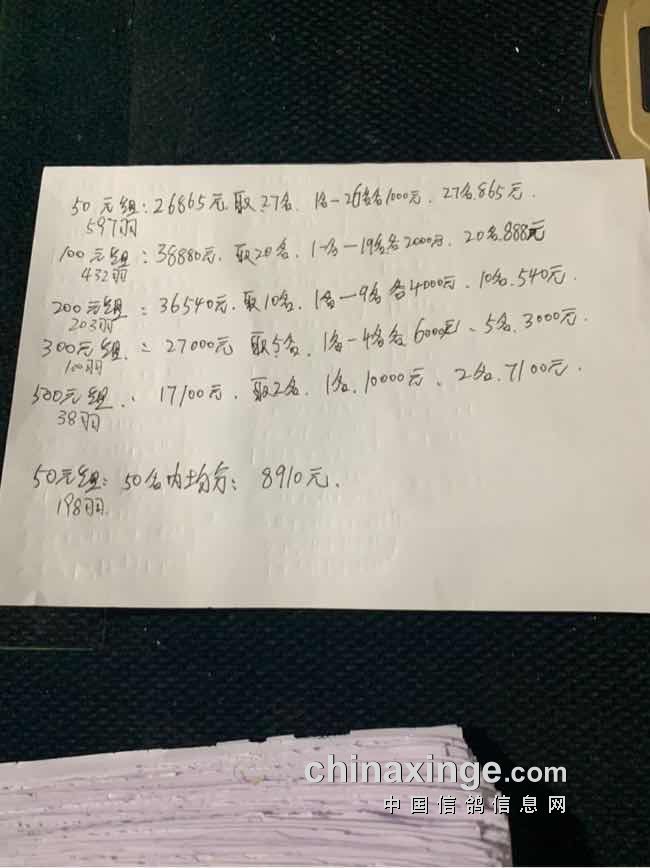 50元组：26865元.取27名.1名-26名各1000元.27名.865元.
597羽
100元组：38880元.取20名.1名-19名各2000元.20名.888元
432羽
200元组：36540元.取10名.1名-9名各4000元.10名.540元.
203羽
300元组：27000元 取5名.1名-4名各6000元、5名.3000元.
100羽
500元组：17100元.取2名.1名.10000元、2名.7100元.
38羽
50元组：50名内均分：8910元.
198羽.
chinaxinge.com
中国信鸽信息网